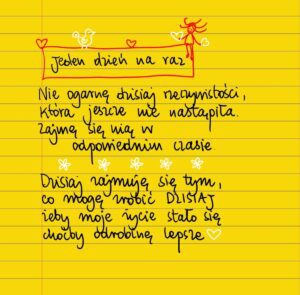 Jeden dzień na raz
Nie ogarnę dzisiaj rzeczywistości,
która jeszcze nie nastąpiła.
Zajmę się nią w
odpowiednim czasie
Dzisiaj zajmuję się tym,
co mogę zrobić DZISIAJ
żeby moje życie stało się
choćby odrobinę lepsze